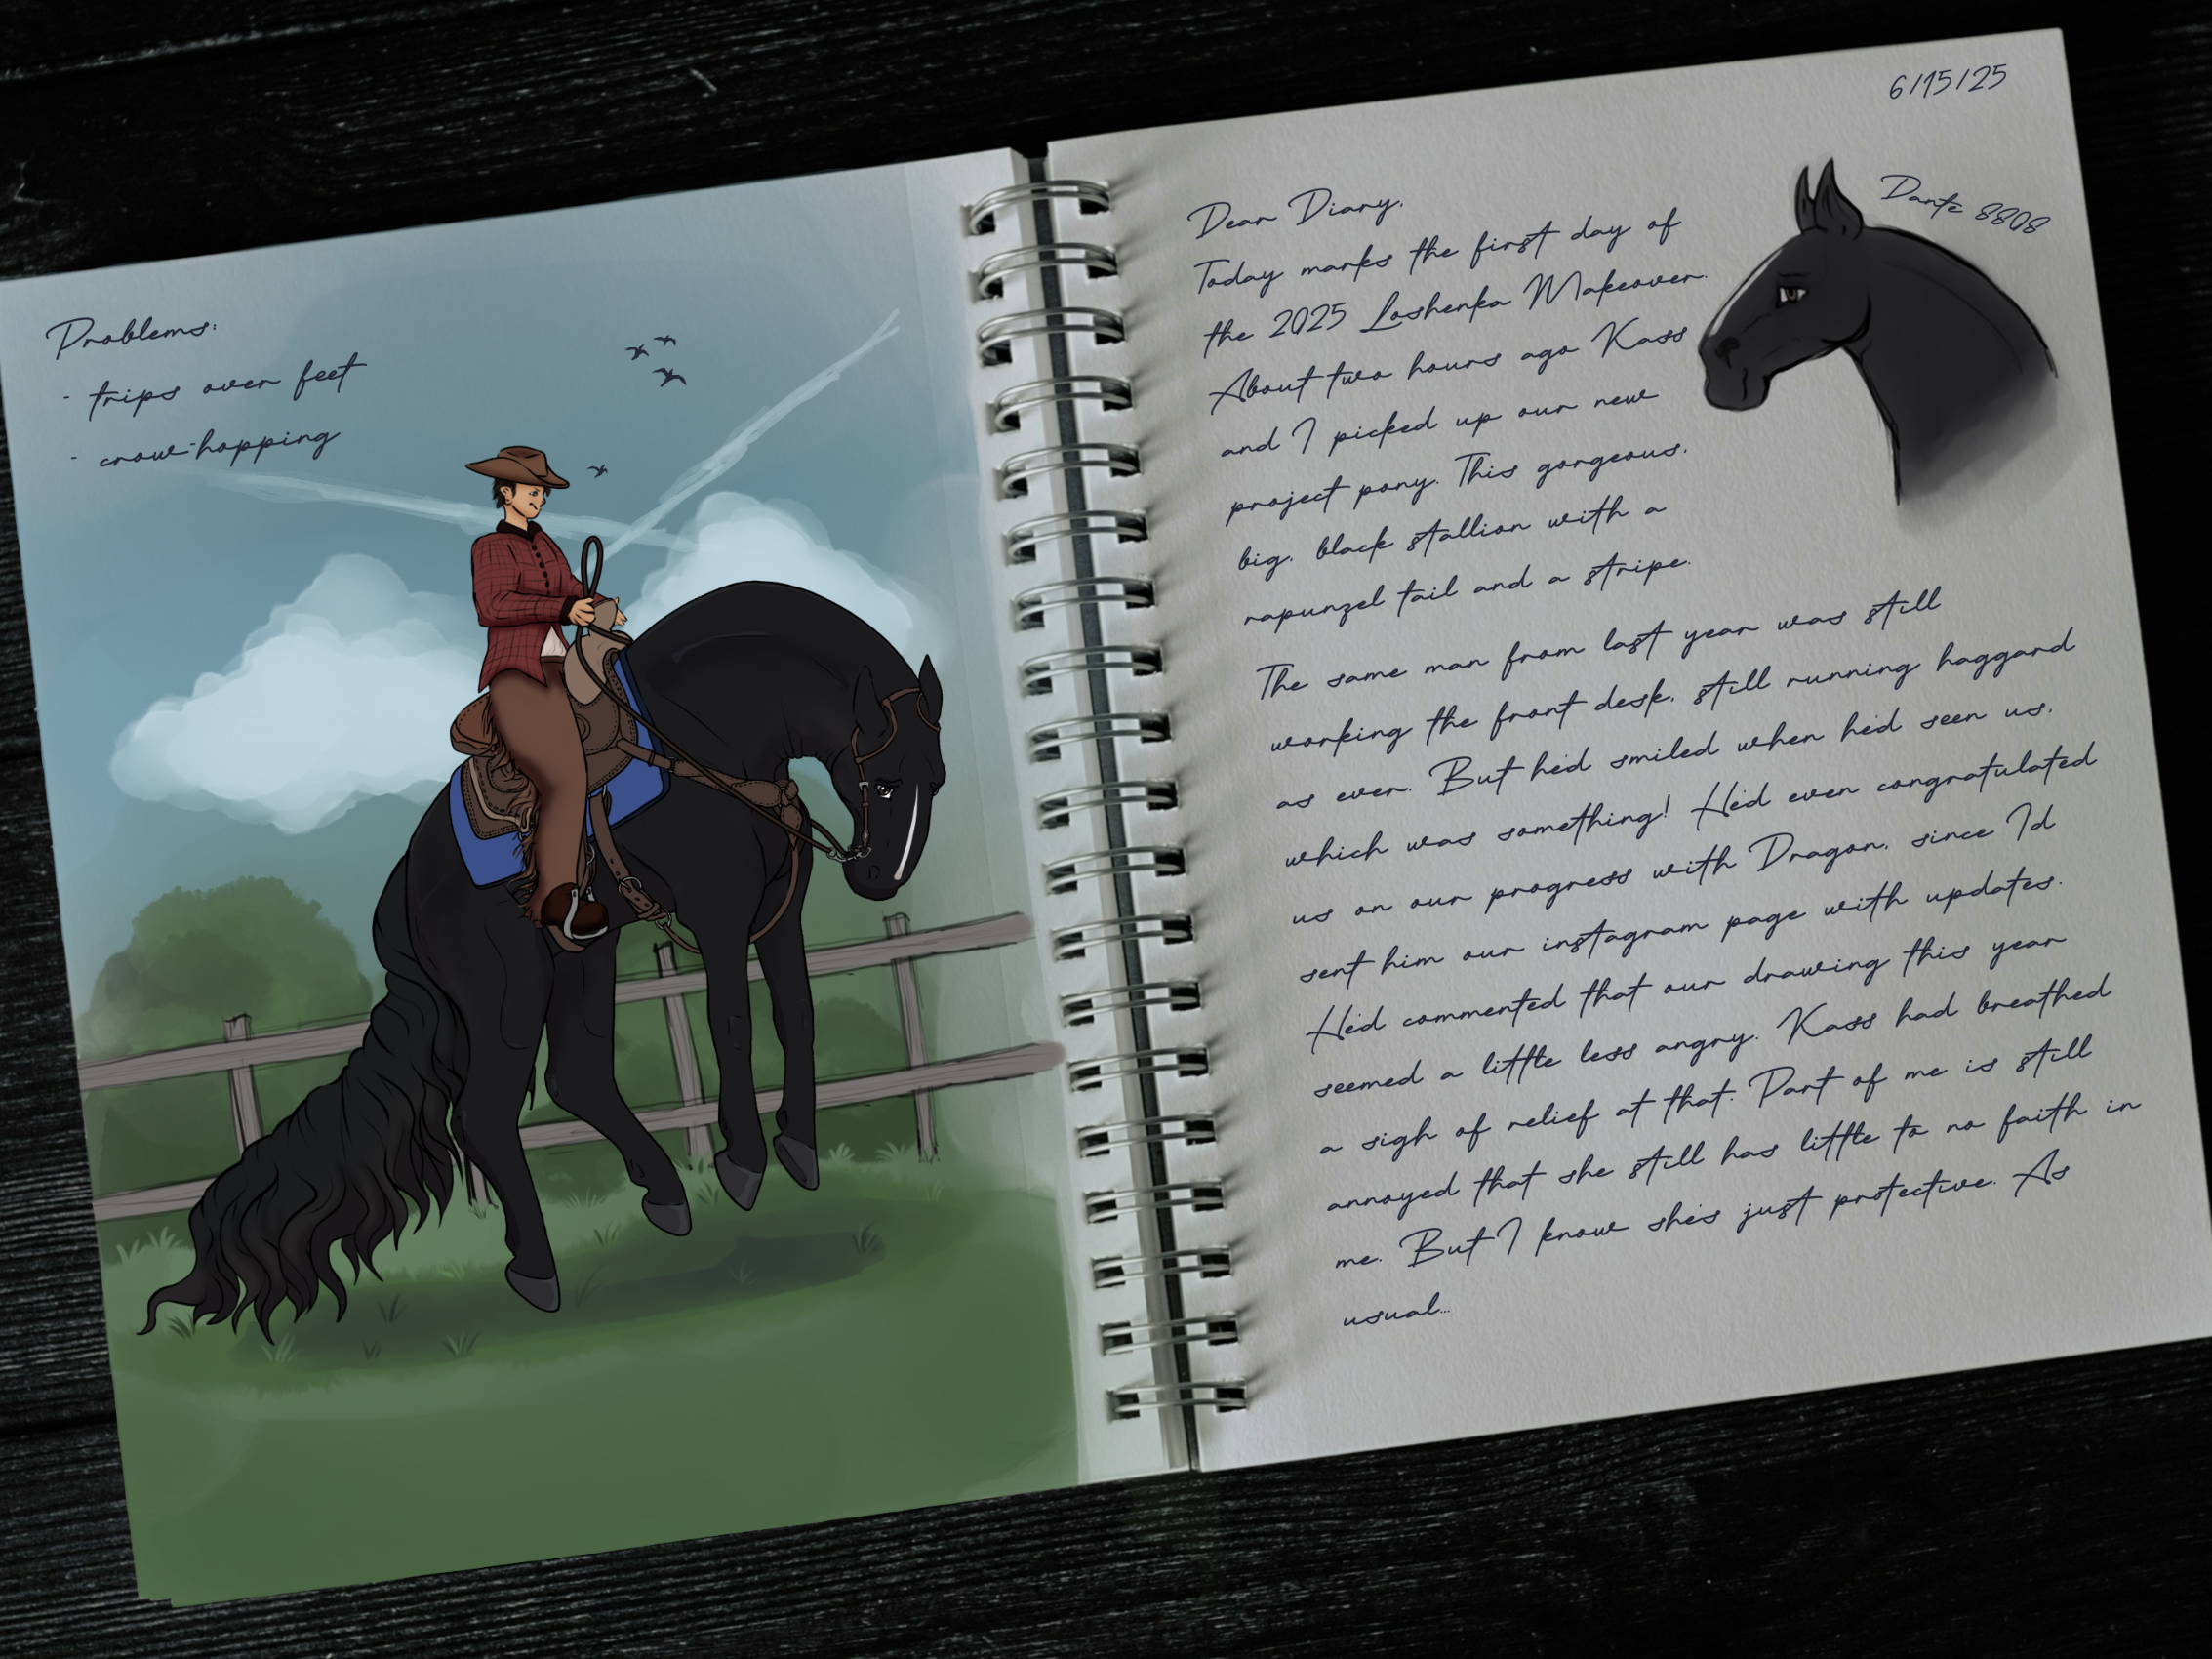 Problems:
- trips over feet
- crow-hopping
6/15/25
Dante 8808
Dear Diary,
Today marks the first day of
the 2025 Loshenka Makeover.
About two hours ago Kass
and I picked up our new
project pony. This gorgeous,
big, black stallion with a
rapunzel tail and a stripe.
The same man from last year was still
working the front desk, still running haggard
as ever. But he'd smiled when he'd seen us,
which was something! He'd even congratulated
us on our progress with Dragon, since I'd
sent him our instagram page with updates.
He'd commented that our drawing this year
seemed a little less angry. Kass had breathed
a sigh of relief at that. Part of me is still
annoyed that she still has little to no faith in
me. But I know she's just protective. As
usual...